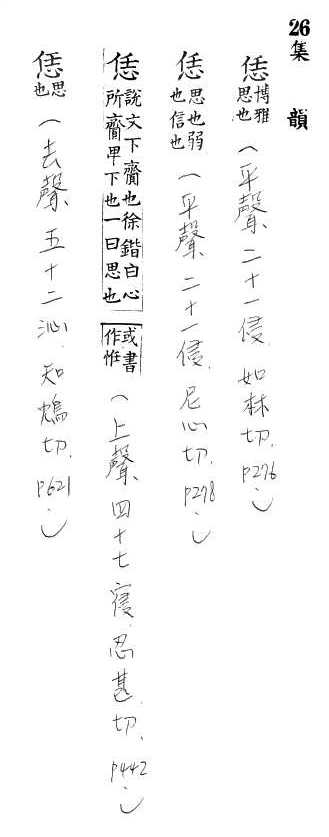 26集 韻
恁博雅思也（平聲、二十一侵、如林切、P276。）
恁思也弱也信也（平聲、二十一侵、尼心切、P278。）
恁說文下齎也徐鍇曰心所齎卑下也一曰思也或書作恠（上聲、四十七寑、忍甚切、P442。）
恁思也（去聲、五十二沁、知鴆切、P621。）